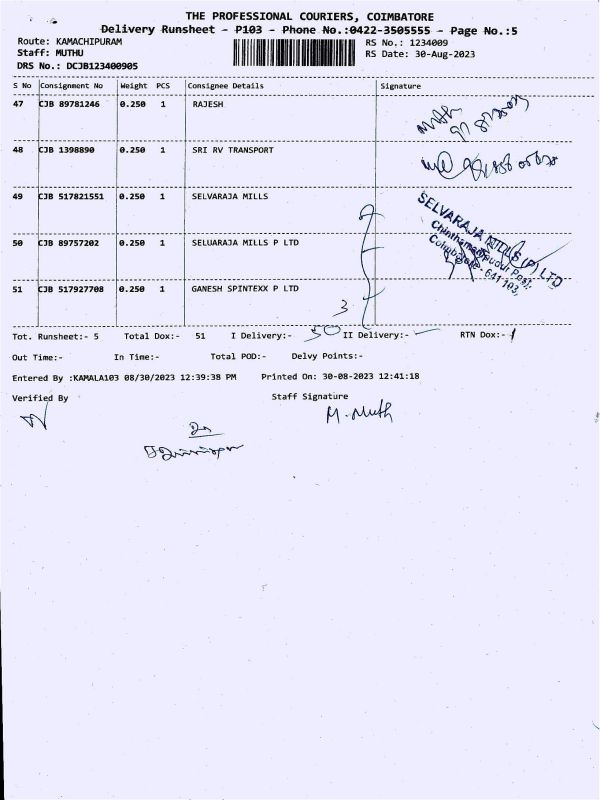 THE PROFESSIONAL COURIERS, COIMBATORE
Delivery Runsheet - P103 - Phone No.:0422-3505555 - Page No.:5
Route: KAMACHIPURAM RS No.: 1234009
Staff: MUTHU RS Date: 30-Aug-2023
DRS No.: DCJB123400905
S No Consignment No Weight PCS Consignee Details Signature
47 CJB 89781246 0.250 1 RAJESH
48 CJB 1398890 0.250 1 SRI RV TRANSPORT
49 CJB 517821551 0.250 1 SELVARAJA MILLS
SELVARAJA MILLS (P) LTD
Chinthamanipudur Post,
Coimbatore - 641 103,
50 CJB 89757202 0.250 1 SELUARAJA MILLS P LTD
51 CJB 517927708 0.250 1 GANESH SPINTEXX P LTD
3
Tot. Runsheet:- 5 Total Dox:- 51 I Delivery:- 50 II Delivery:- RTN Dox:- 1
Out Time:- In Time:- Total POD:- Delvy Points:-
Entered By :KAMALA103 08/30/2023 12:39:38 PM Printed On: 30-08-2023 12:41:18
Verified By Staff Signature
M. Muth